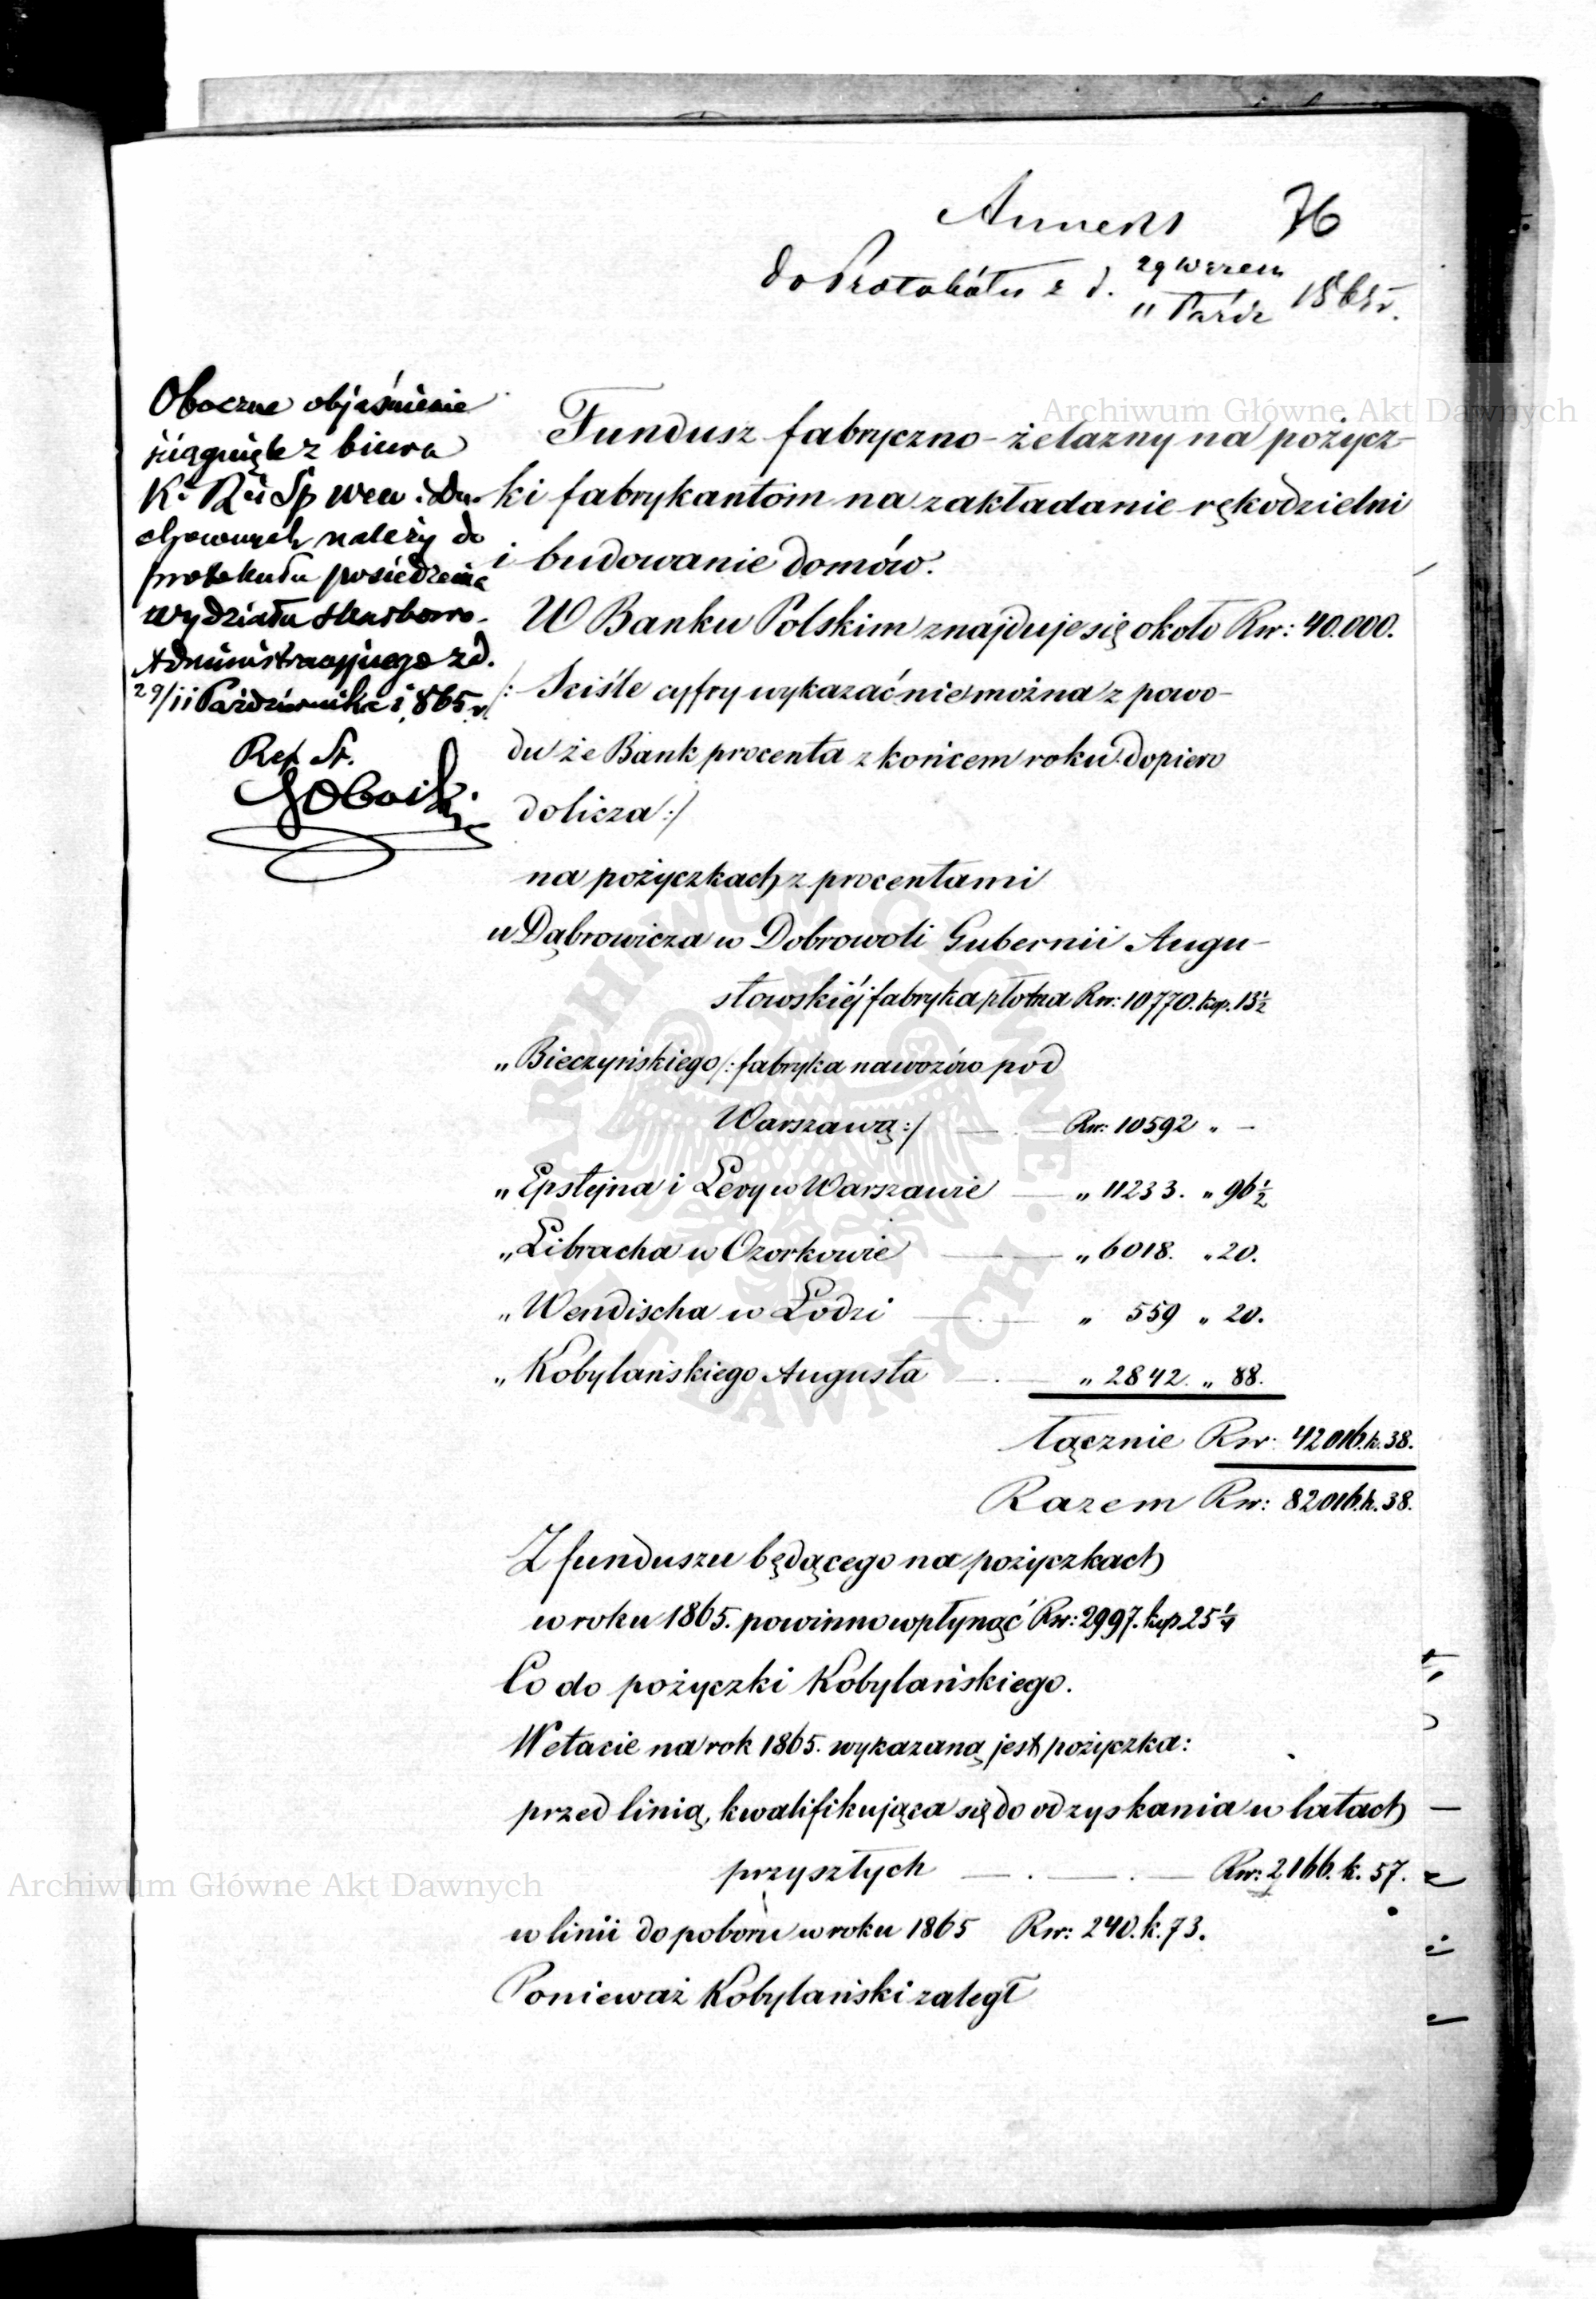 Annex 76
do Protokółu z d. 29 Wrześn 1865 r.
11 Paźdz
Oboczne objaśnienie
z biura
K. R. i Sp Wew. i Du-
chownych należy do
protokułu posiedzenia
Wydziału Skarbowo-
Administracyjnego z d.
29/11 Październike 1865 r
Ref. St.
Fundusz fabryczno-żelazny na pożycz-
ki fabrykantom na zakładanie rękodzielni
i budowanie domów.
W Banku Polskim znajduje się około Rsr: 40.000.
/: Sciśle cyfry wykazać nie można z powo-
du że Bank procenta z końcem roku dopiero
dolicza :/
na pożyczkach z procentami
u Dąbrowicza w Dobrowoli Gubernii Augu-
stowskiéj fabryka płótna Rsr: 10770. kop. 13½
„ Bieczyńskiego /: fabryka nawozów pod
Warszawą :/ — Rsr: 10592 „ —
„ Epstejna i Levy w Warszawie — „ 11233. „ 96½
„ Libracha w Ozorkowie — „ 6018. „ 20.
„ Wendischa w Łodzi — „ 559 „ 20.
„ Kobylańskiego Augusta — „ 2842. „ 88.
łącznie Rsr: 42016. k. 38.
Razem Rsr: 82016. k. 38.
Z funduszu będącego na pożyczkach
w roku 1865. powinno wpłynąć Rsr: 2997. kop 25¼
Co do pożyczki Kobylańskiego.
W etacie na rok 1865. wykazaną jest pożyczka:
przed linią, kwalifikująca się do odzyskania w latach
przyszłych — . — . — Rsr: 2166. k. 57.
w linii do poboru w roku 1865 Rsr: 240. k. 73.
Ponieważ Kobylański zaległ
Archiwum Główne Akt Dawnych
Archiwum Główne Akt Dawnych
ARCHIWUM GŁÓWNE AKT DAWNYCH